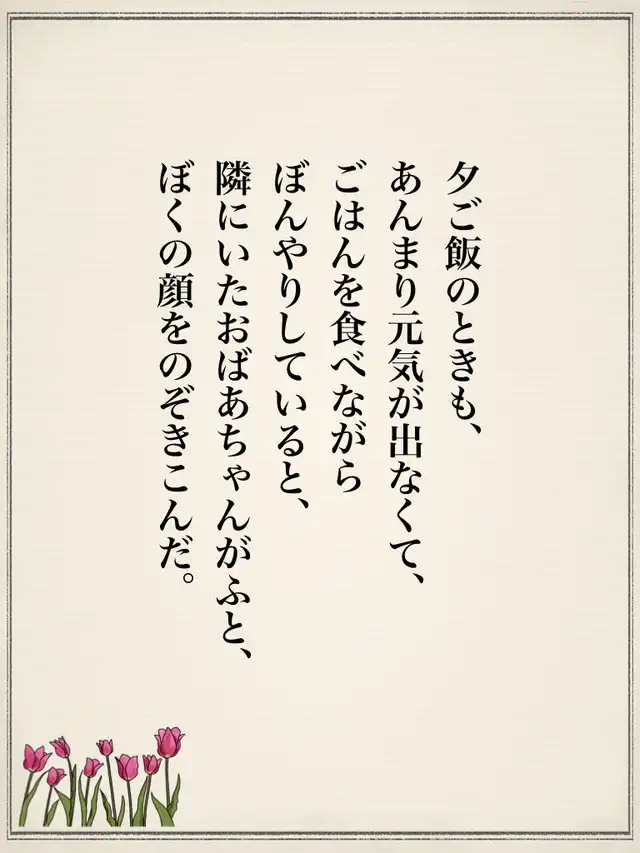 夕ご飯のときも、
あんまり元気が出なくて、
ごはんを食べながら
ぼんやりしていると、
隣にいたおばあちゃんがふと、
ぼくの顔をのぞきこんだ。